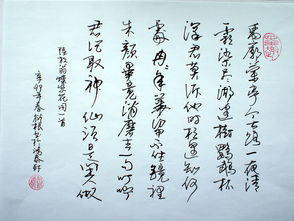 禹廟蘭亭今古路一夜清
霜染尽湖邊樹鸚鵡杯
深君莫诉他时相遇知何
處冉冉年華留不住镜裡
朱顏畢竟消磨去一句叮咛
君记取神仙须是闲人做
陸放翁蝶恋花词一首
年春